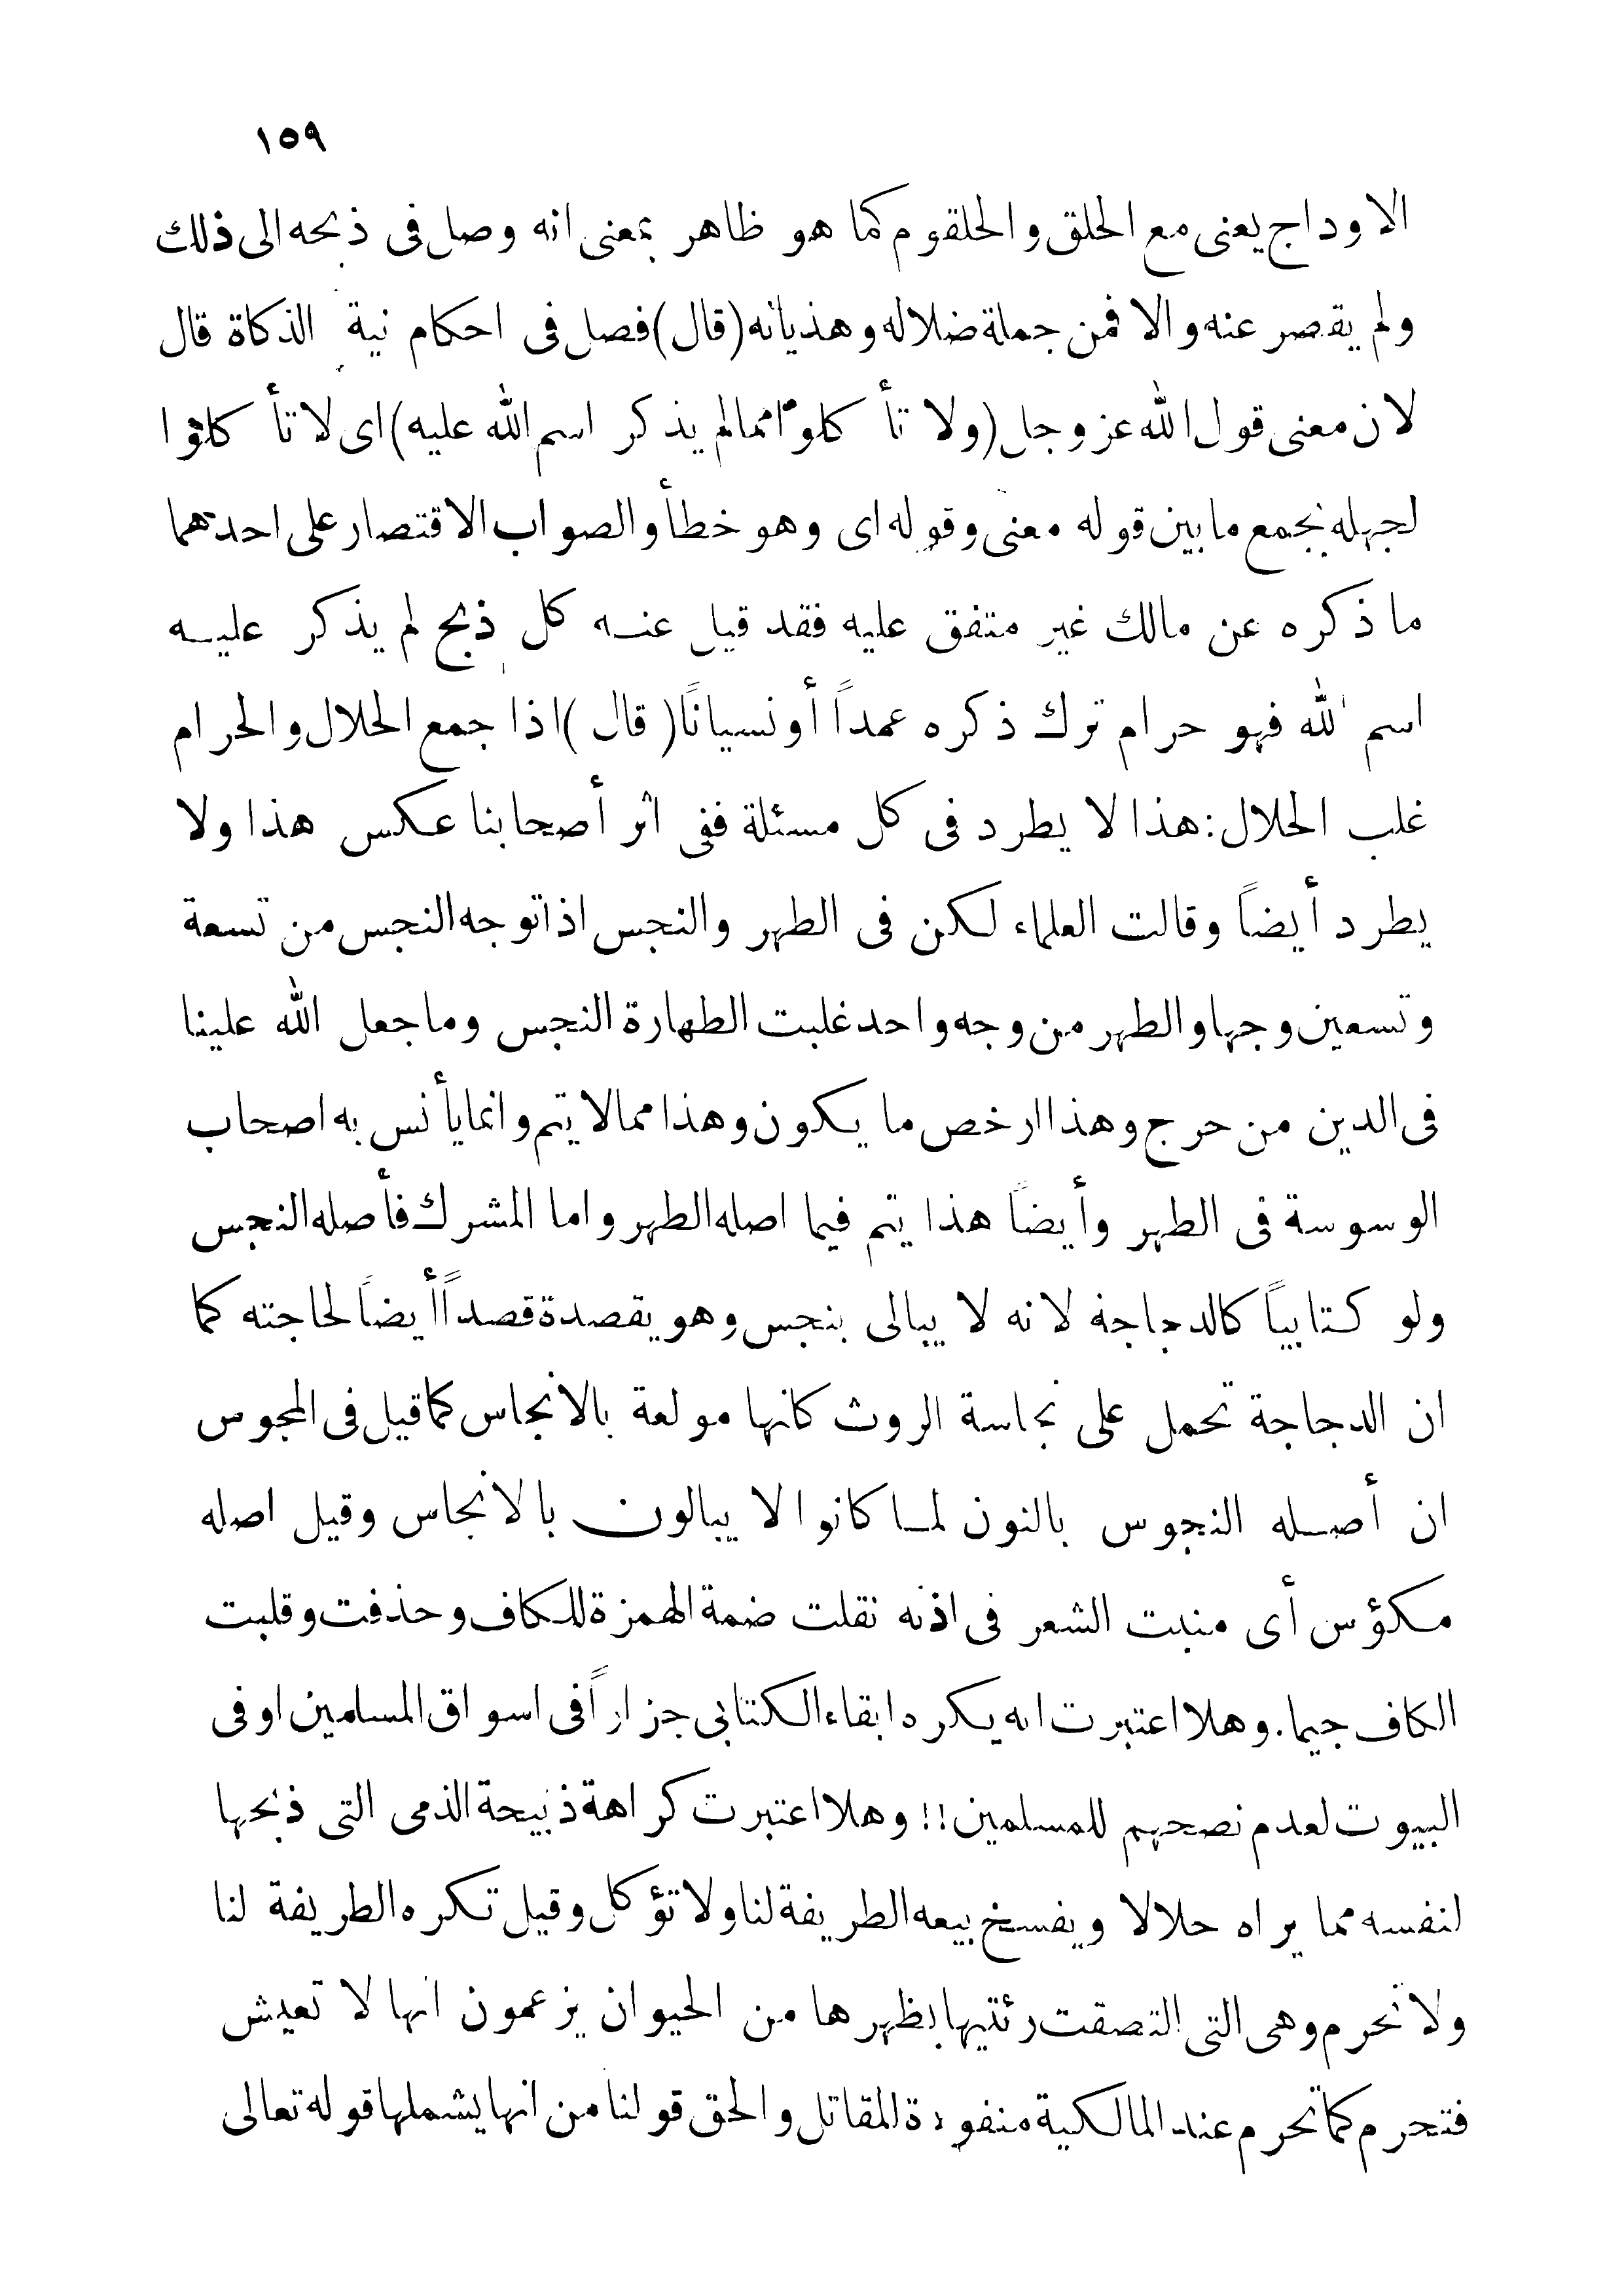 ١٥٩
الاوداج يعنى مع الحلق والحلقوم كما هو ظاهر بمعنى انه وصل فى ذبحه الى ذلك
ولم يقصر عنه والا فمن جملة ضلاله وهذيانه (قال) فصل فى احكام نية الذكاة قال
لان معنى قول الله عز وجل (ولا تأ كلوا مما لم يذكر اسم الله عليه) اى لا تأ كلوا
لجهله بجمع ما بين قوله معنى وقوله اى وهو خطأ والصواب الاقتصار على احدهما
ما ذكره عن مالك غير متفق عليه فقد قيل عنه كل ذبح لم يذكر عليه
اسم الله فهو حرام ترك ذكره عمداً أو نسياناً (قال) اذا جمع الحلال والحرام
غلب الحلال: هذا لا يطرد فى كل مسئلة ففى اثر أصحابنا عكس هذا ولا
يطرد أيضاً وقالت العلماء لكن فى الطهر والنجس اذا توجه النجس من تسعة
وتسعين وجها والطهر من وجه واحد غلبت الطهارة النجس وما جعل الله علينا
فى الدين من حرج وهذا ارخص ما يكون وهذا مما لا يتم وانما يأنس به اصحاب
الوسوسة فى الطهر وأيضاً هذا يتم فيما اصله الطهر واما المشرك فأصله النجس
ولو كتابياً كالدجاجة لانه لا يبالى بنجس وهو يقصدة قصداً أيضاً لحاجته كما
ان الدجاجة تحمل على نجاسة الروث كانها مولعة بالانجاس كما قيل فى المجوس
ان أصله النجوس بالنون لما كانوا لا يبالون بالانجاس وقيل اصله
مكؤس أى منبت الشعر فى اذنه نقلت ضمة الهمزة للكاف وحذفت وقلبت
الكاف جيما. وهلا اعتبرت انه يكره ابقاء الكتابى جزاراً فى اسواق المسلمين او فى
البيوت لعدم نصحهم للمسلمين!! وهلا اعتبرت كراهة ذبيحة الذمى التى ذبحها
لنفسه مما يراه حلالا ويفسخ بيعه الطريفة لنا ولا تؤكل وقيل تكره الطريفة لنا
ولا تحرم وهى التى التصقت رئتيها بظهرها من الحيوان يزعمون انها لا تعيش
فتحرم كما تحرم عند المالكية منفوذة المقاتل والحق قولنا من انها يشملها قوله تعالى